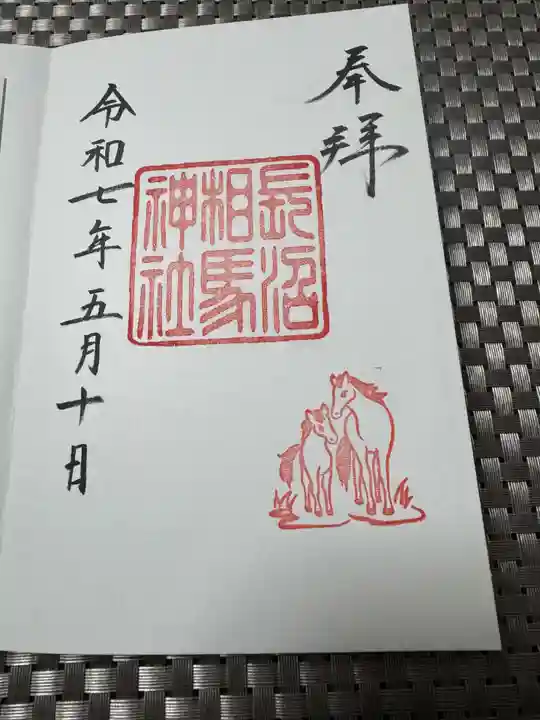 奉拜
長沼
相馬
神社
令和七年五月十日